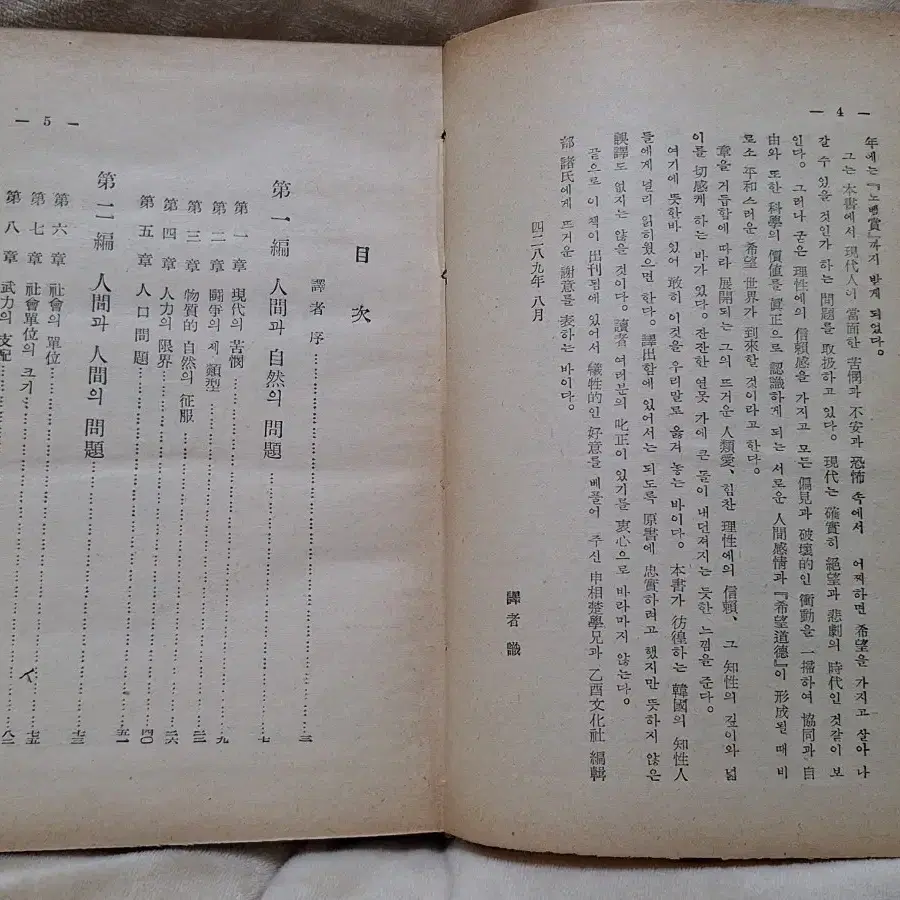 — 4 —
年에는 『노벨賞』까지 받게 되었다。
그는 本書에서 現代人이 當面한 苦憫과 不安과 恐怖 속에서 어찌하면 希望을 가지고 살아 나
갈 수 있을 것인가 하는 問題를 取扱하고 있다。 現代는 確實히 絕望과 悲劇의 時代인 것같이 보
인다。 그러나 굳은 理性에의 信賴感을 가지고 모든 偏見과 破壞的인 衝動을 一掃하여 協同과 自
由와 또한 科學의 價値를 眞正으로 認識하게 되는 서로운 人間感情과 『希望道德』이 形成될 때 비
로소 平和스러운 希望 世界가 到來할 것이라고 한다。
章을 거듭함에 따라 展開되는 그의 뜨거운 人類愛、 힘찬 理性에의 信賴、 그 知性의 깊이와 넓
이를 切感케 하는 바가 있다。 잔잔한 연못 가에 큰 돌이 내던져지는 듯한 느낌을 준다。
여기에 뜻한바 있어 敢히 이것을 우리말로 옮겨 놓는 바이다。 本書가 彷徨하는 韓國의 知性人
들에게 널리 읽히웠으면 한다。 譯出함에 있어서는 되도록 原書에 忠實하려고 했지만 뜻하지 않은
誤譯도 없지는 않을 것이다。 讀者 여러분의 叱正이 있기를 衷心으로 바라마지 않는다。
끝으로 이 책이 出刊됨에 있어서 犧牲的인 好意를 베풀어 주신 申相楚學兄과 乙酉文化社 編輯
部 諸氏에게 뜨거운 謝意를 表하는 바이다。
四二八九年 八月
譯者 識
— 5 —
目次
譯者 序 三
第一編 人間과 自然의 問題 七
第一章 現代의 苦憫 九
第二章 鬪爭의 세 類型 二二
第三章 物質的 自然의 征服 二六
第四章 人力의 限界 四〇
第五章 人口問題 五一
第二編 人間과 人間의 問題 七三
第六章 社會의 單位
第七章 社會單位의 크기 七五
第八章 武力의 支配 八二